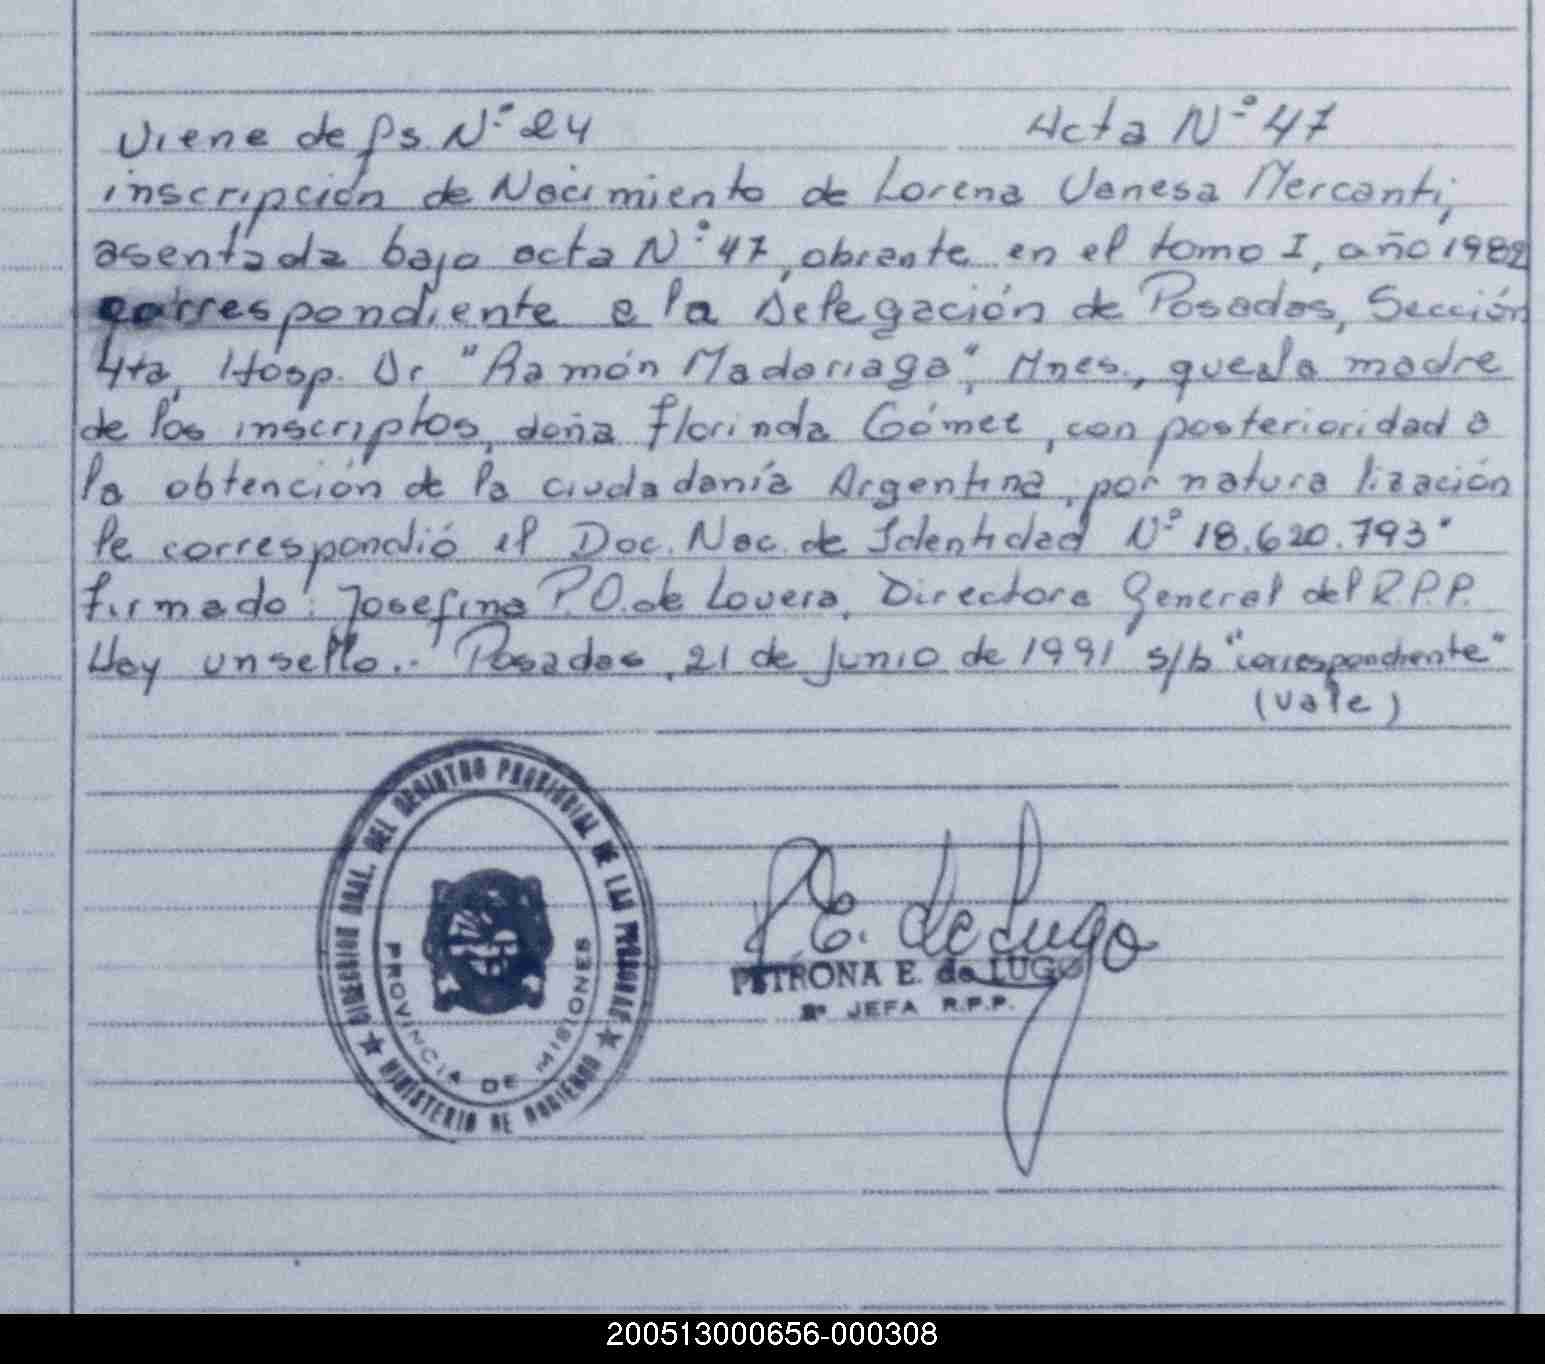 Viene de fs. N° 24 Acta N° 47
inscripción de Nacimiento de Lorena Vanesa Mercanti,
asentada bajo acta N° 47, obrante en el tomo I, año 1982
correspondiente a la Delegación de Posadas, Sección
4ta, Hosp. Dr. "Ramón Madariaga", Mnes., que a la madre
de los inscriptos, doña Florinda Gómez, con posterioridad a
la obtención de la ciudadanía Argentina, por naturalización
le correspondió el Doc. Nac. de Identidad N° 18.620.793"
firmado: Josefina P.O. de Lovera, Directora General del R.P.P.
Hay un sello.. Posadas, 21 de Junio de 1991 s/b "correspondiente"
(vale)
DIRECCION GRAL. DEL REGISTRO PROVINCIAL DE LAS PERSONAS
MINISTERIO DE GOBIERNO
PROVINCIA DE MISIONES
P E. de Lugo
PETRONA E. de LUGO
2° JEFA R.P.P.
200513000656-000308